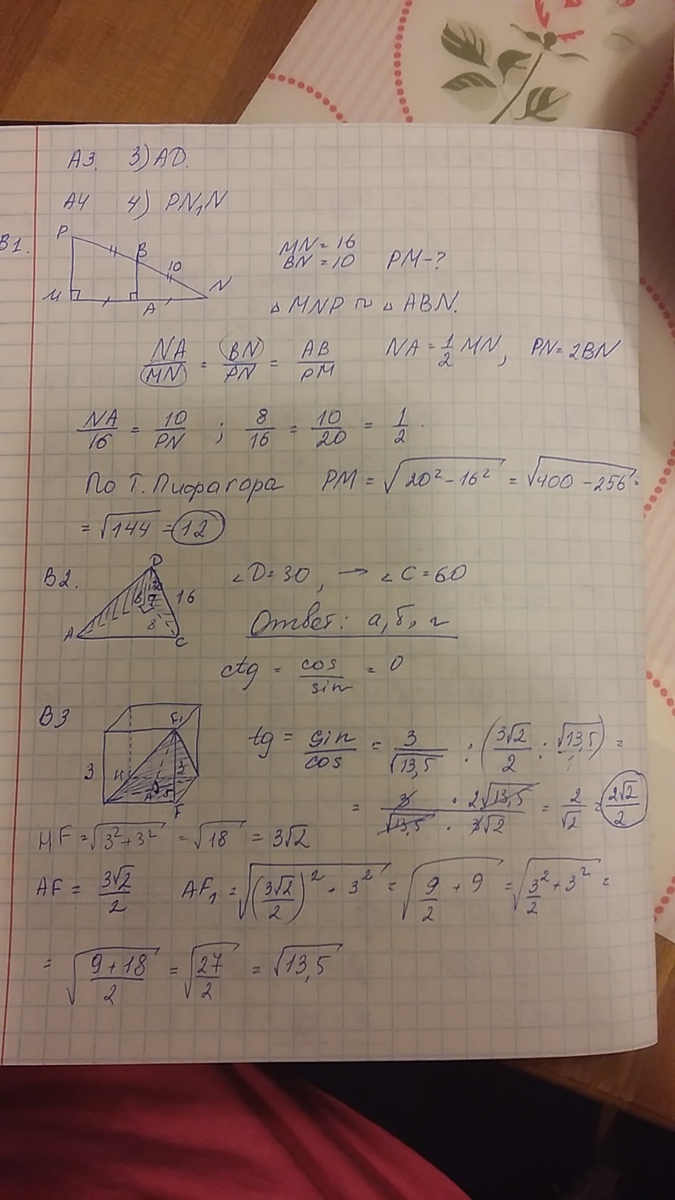 А3. 3) AD.
А4 4) PN₁N
В1.
P
B
10
M
A
N
MN = 16
BN = 10 PM - ?
△ MNP ~ △ ABN.
NA/MN = BN/PN = AB/PM NA = 1/2 MN, PN = 2BN
NA/16 = 10/PN ; 8/16 = 10/20 = 1/2.
По Т. Пифагора PM = √(20² - 16²) = √(400 - 256) =
= √144 = 12
В2.
D
16
8
A
C
∠D = 30, → ∠C = 60
Ответ: а, б, г
ctg = cos/sin = 0
В3
F₁
3
H
3
A
F
tg = sin/cos = 3/√13,5 : (3√2/2 : √13,5) =
= 3/√13,5 · 2√13,5/3√2 = 2/√2 = 2√2/2
HF = √(3² + 3²) = √18 = 3√2
AF = 3√2/2 AF₁ = √((3√2/2)² + 3²) = √(9/2 + 9) = √(3²/2 + 3²) =
= √((9 + 18)/2) = √(27/2) = √13,5